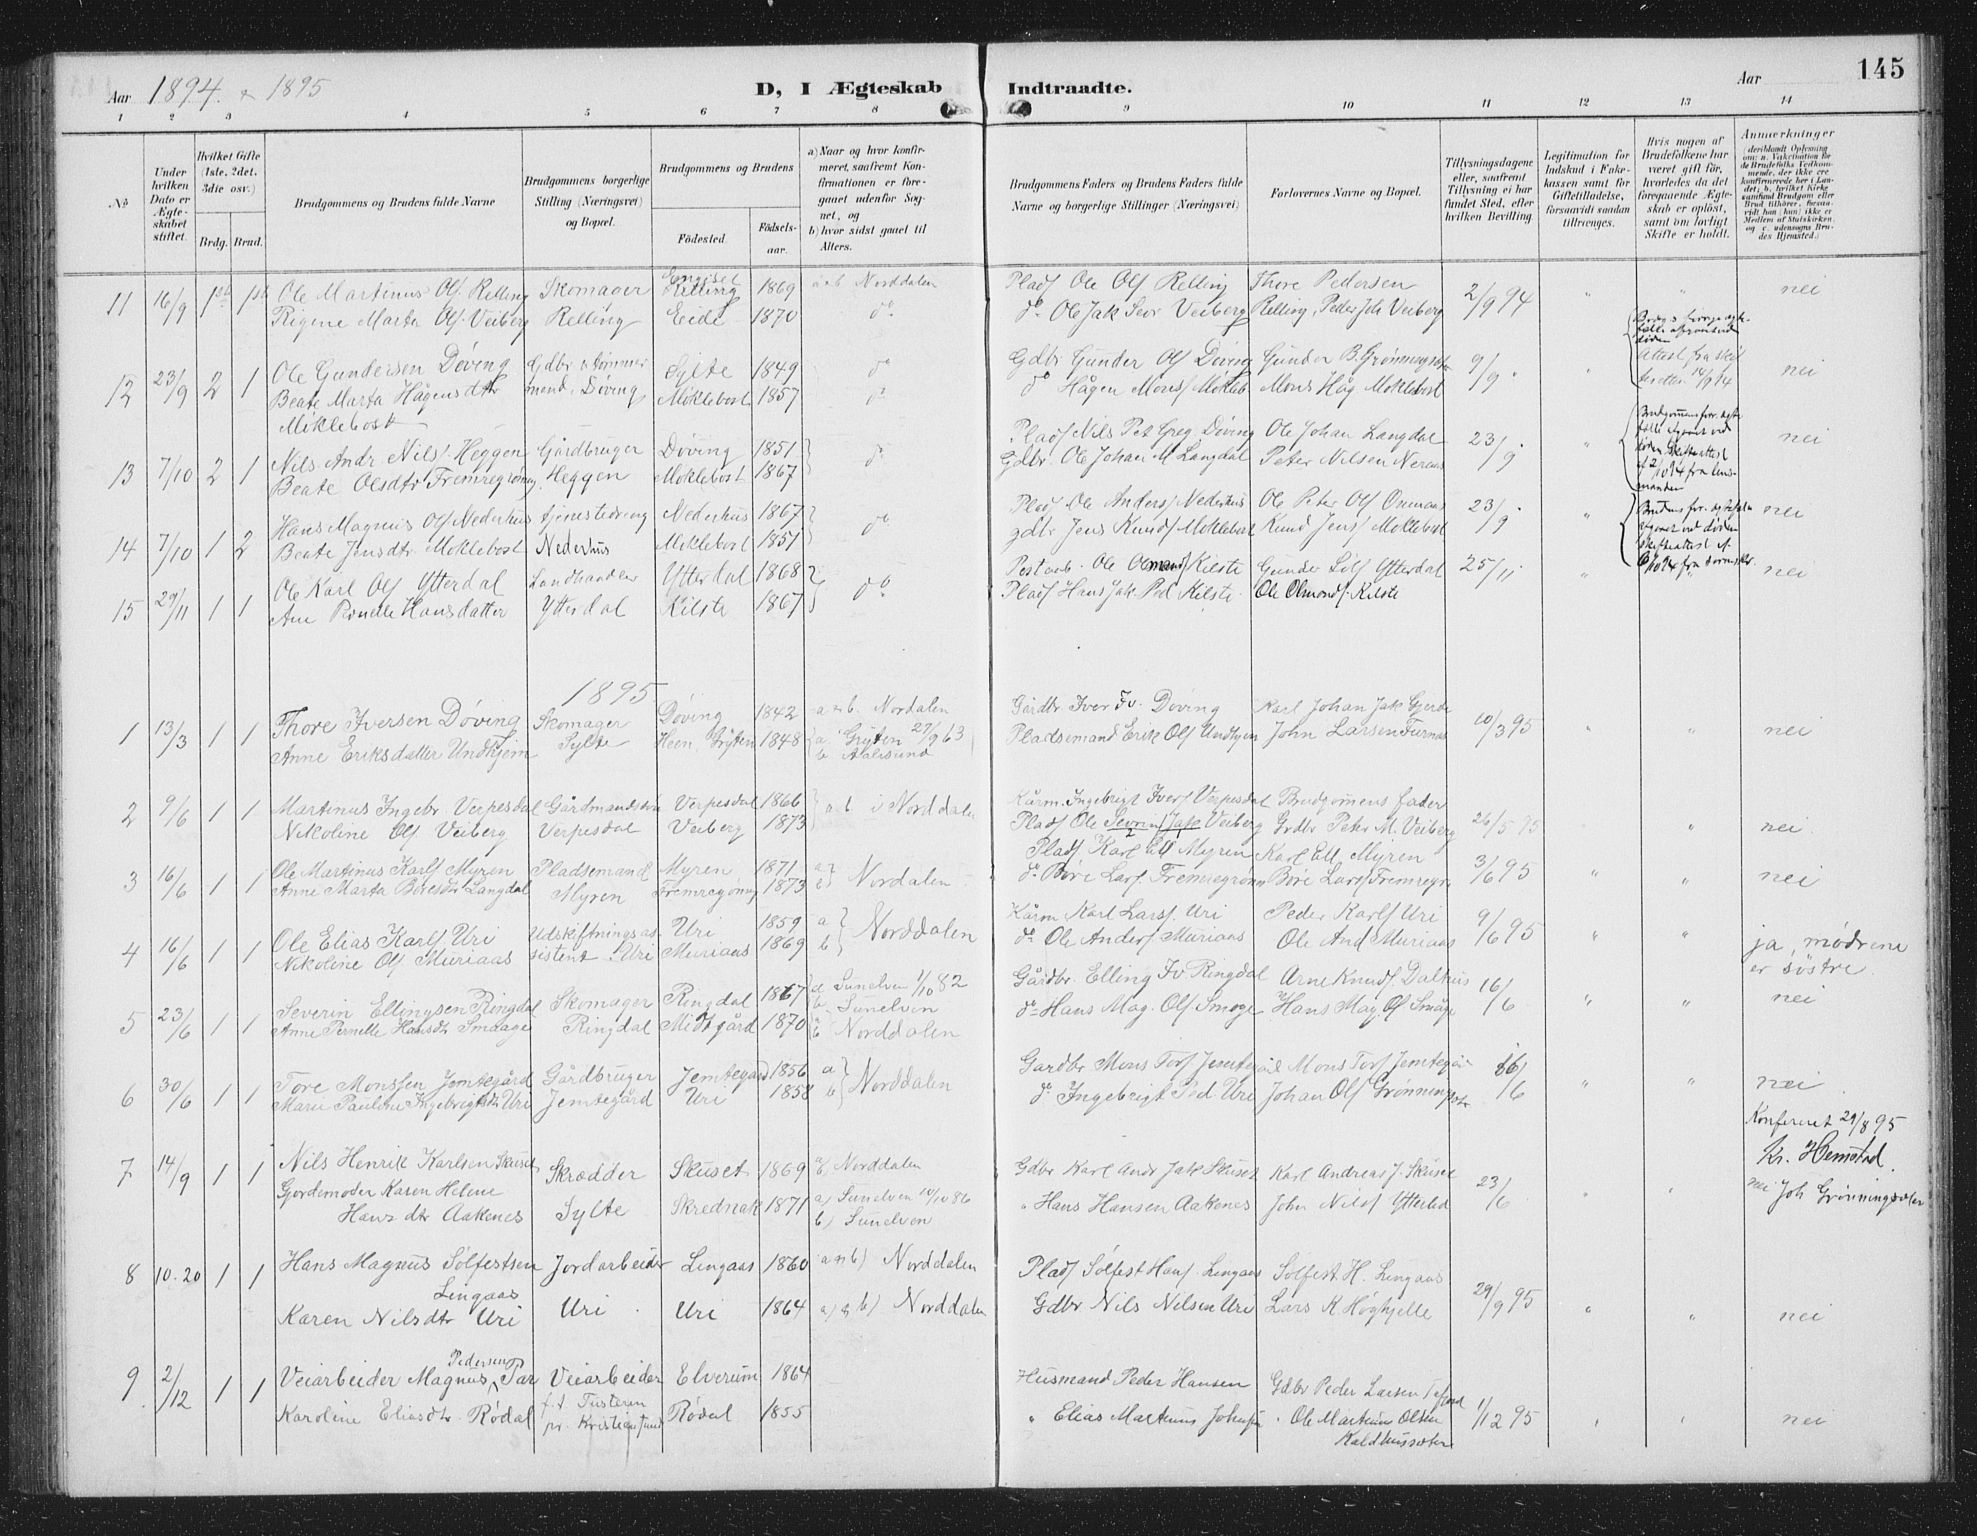 Aar 1894 & 1895
D, I Ægteskab Indtraadte.
Aar
145
1 2 3 4 5 6 7 8 9 10 11 12 13 14
No
Under hvilken Dato er Ægteskabet stiftet.
Hvilket Gifte (1ste, 2det, 3die osv.)
Brdg. Brud.
Brudgommens og Brudens fulde Navne
Brudgommens borgerlige Stilling (Næringsvei) og Bopæl.
Brudgommens og Brudens
Fødested
Fødselsaar.
a) Naar og hvor konfirmeret, saafremt Konfirmationen er foregaaet udenfor Sognet, og
b) hvor sidst gaaet til Alters.
Brudgommens Faders og Brudens Faders fulde Navne og borgerlige Stillinger (Næringsvei)
Forlovernes Navne og Bopæl.
Tillysningsdagene eller, saafremt Tillysning ei har fundet Sted, efter hvilken Bevilling
Legitimation for Indskud i Enkekassen samt for Giftetilladelse, forsaavidt saadan tiltrænges.
Hvis nogen af Brudefolkene har været gift før, hvorledes da det foregaaende Ægteskab er opløst, samt om lovligt Skifte er holdt.
Anmærkninger
11 16/9 1st 1st Ole Martinus Ols. Relling Skomager Relling 1869 a&b Norddalen Plads Ole Ols Relling Thore Pedersen 2/9 94 " " nei
Rigene Marta Ols. Veiberg Relling Eide 1870 do do Ole Jak Sevr Veiberg Relling, Peder Joh Veiberg
12 23/9 2 1 Ole Gundersen Døving Gdbr & tømmer Sylte 1849 do Gdbr Gunder Ols Døving Gunder B. Grønningsæter 9/9 " nei
Beate Marta Hågensdtr mand, Døving Moklebost 1857 do do Hågen Mons/ Mokleb Mons Håg Moklebost
Moklebost
Attest fra skifteretten 14/9 94
13 7/10 2 1 Nils Andr Nils/ Heggen Gårdbruger Døving 1851 do Plads Nils Pet Greg Døving Ole Johan Langdal 23/9 " nei
Beate Olsdtr Fremregrøning Heggen Moklebost 1867 Gdbr. Ole Johan M Langdal Peter Nilsen Neraas
Brudgommens for. ægtefælle afgaaet ved døden Skifteattest af 2/10 94 fra lensmanden
14 7/10 1 2 Hans Magnus Ols Nederhus tjenestedreng Nederhus 1867 do Plads Ole Anders/ Nederhus Ole Peter Ols 23/9 " nei
Beate Jensdtr Moklebost Nederhus Moklebost 1851 gdbr Jens Knuds/ Moklebost Knud Jens/ Moklebost
Brudens for. ægtefælle afgaaet ved døden skifteattest af 6/10 94 fra
15 29/11 1 1 Ole Karl Ols Ytterdal Landhandler Ytterdal 1868 do Ole Kilsti Gunder Ytterdal 25/11 " " nei
Ane Pernelle Hansdatter Ytterdal Kilsti 1867 Plads Hans Jak Ped Kilsti Ole Olmands/ Kilsti
1895
1 13/3 1 1 Thore Iversen Døving Skomager Døving 1842 a & b. Nordalen Gårdbr Iver Iv. Døving Karl Johan Jak Gjerde 10/3 95 " " nei
Anne Eriksdatter Undhjem Sylte Heen, Grytten 1848 a Grytten 27/9 63 Pladsemand Erik Ols Undhjem John Larsen Furnas
b Aalesund
2 9/6 1 1 Martinus Ingebr Verpesdal Gårdmandssøn Verpesdal 1866 a&b i Norddalen Kårm. Ingebrigt Ivers/ Verpesdal Brudgomens fader 26/5 95 " nei
Nikoline Ols Veiberg Verpesdal Veiberg 1873 Plads Ole Sevrin/ Jak Veiberg Grdbr Peter M. Veiberg
3 16/6 1 1 Ole Martinus Karls Myren Pladsemand Myren 1871 a Nordalen Plads Karl Ell Myren Karl Ell Myren 3/6 95 " " nei
Anne Marta Børesdtr Langdal Myren Fremregrøning 1873 b do Børe Lars/ Fremregrøning Børe Lars/ Fremregr.
4 16/6 1 1 Ole Elias Karls Uri Udskiftningsas- Uri 1859 a Norddalen Kårm Karl Lars/. Uri Peder Karls Uri 9/6 95 " " ja, mødrene er søstre.
Nikoline Ols Muriaas sistent. Uri Muriaas 1869 b do Ole Anders/ Muriaas Ole And Muriaas
5 23/6 1 1 Severin Ellingsen Ringdal Skomager Ringdal 1867 a Sunelven 1/10 82 Gårdbr. Elling Iv Ringdal Arne Knuds/ Dalhus 16/6 " " nei
b Sunelven
Anne Pernelle Hansdtr Smaage Ringdal Midtgård 1870 b Norddalen do Hans Mag. Ols Smoge Hans Mag. Ols Småge
6 30/6 1 1 Tore Monssen Jemtegård Gårdbruger Jemtegård 1856 a Norddalen Gardbr Mons Tors Jemtegård Mons Tors Jemtegår 16/6 " " nei
Marie Pauline Ingebrigtsdtr Uri Jemtegård Uri 1858 b do Ingebrigt Ped Uri Johan Ols Grønningsætr
Konfereret 29/8 95
Kr. Hemstad.
7 14/9 1 1 Nils Henrik Karlsen Skuset Skrædder Skuset 1869 a/b Norddalen Gdbr Karl Andr Jak Skuset Karl Andreas J. Skuset 23/6 " " nei Joh Grønningsæter
Gjordemoder Karen Helene
Hansdtr Aakenes Sylte Skrednak 1871 a) Sunelven 10/10 86 " Hans Hansen Aakenes John Nils/ Ytterdal
b) Sunelven
8 10.20 1 1 Hans Magnus Solfestsen Jordarbeider Lingaas 1860 a & b) Norddalen Plads Solfest Hans/ Lingaas Solfest H. Lingaas 29/9 95 " " nei
Lingaas
Karen Nilsdtr Uri Uri Uri 1864 a) & b) Norddalen Gdbr Nils Nilsen Uri Lars K Høghjelle
9 2/12 1 1 Veiarbeider Magnus Pedersen Veiarbeider Elverum 1864 Husmand Peder Hansen Gdbr Peder Larsen Tafjord 1/12 95 " " nei
Karoline Eliasdtr. Rødal f.t. Tusteren pr. Kristiansund Rødal 1855 " Elias Martinus Johns/ " Ole Martinus Olsen
Kaldhussæter